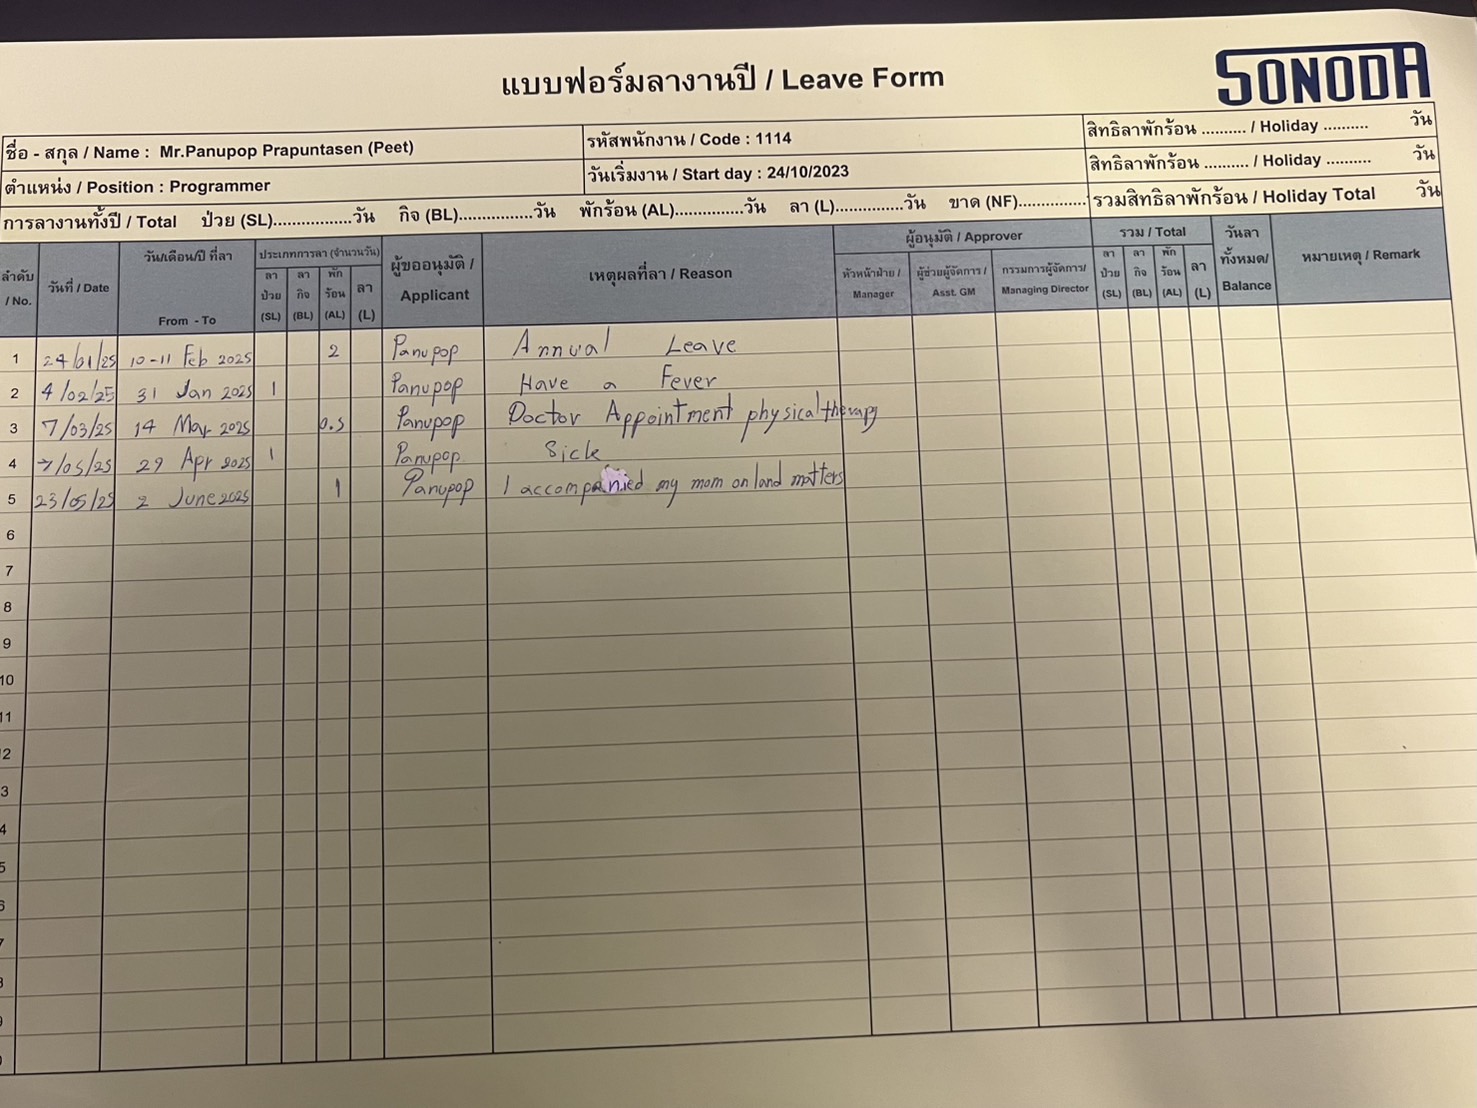 แบบฟอร์มลางานปี / Leave Form
SONODA
ชื่อ - สกุล / Name : Mr.Panupop Prapuntasen (Peet)
รหัสพนักงาน / Code : 1114
สิทธิลาพักร้อน .......... / Holiday .......... วัน
ตำแหน่ง / Position : Programmer
วันเริ่มงาน / Start day : 24/10/2023
สิทธิลาพักร้อน .......... / Holiday .......... วัน
การลางานทั้งปี / Total ป่วย (SL)................วัน กิจ (BL)...............วัน พักร้อน (AL)..............วัน ลา (L)..............วัน ขาด (NF)..............
รวมสิทธิลาพักร้อน / Holiday Total วัน
ลำดับ / No.
วันที่ / Date
วัน/เดือน/ปี ที่ลา
From - To
ประเภทการลา (จำนวนวัน)
ลา ป่วย (SL)
ลา กิจ (BL)
พัก ร้อน (AL)
ลา (L)
ผู้ขออนุมัติ / Applicant
เหตุผลที่ลา / Reason
ผู้อนุมัติ / Approver
หัวหน้าฝ่าย / Manager
ผู้ช่วยผู้จัดการ / Asst. GM
กรรมการผู้จัดการ/ Managing Director
รวม / Total
ลา ป่วย (SL)
ลา กิจ (BL)
พัก ร้อน (AL)
ลา (L)
วันลา ทั้งหมด/ Balance
หมายเหตุ / Remark
1 24/01/25 10-11 Feb 2025 2 Panupop Annual Leave
2 4/02/25 31 Jan 2025 1 Panupop Have a Fever
3 7/03/25 14 Mar 2025 0.5 Panupop Doctor Appointment physical therapy
4 7/05/25 29 Apr 2025 1 Panupop Sick
5 23/05/25 2 June 2025 1 Panupop I accompanied my mom on land matters
6
7
8
9
10
11
2
3
4
5
6
7
8
9
0